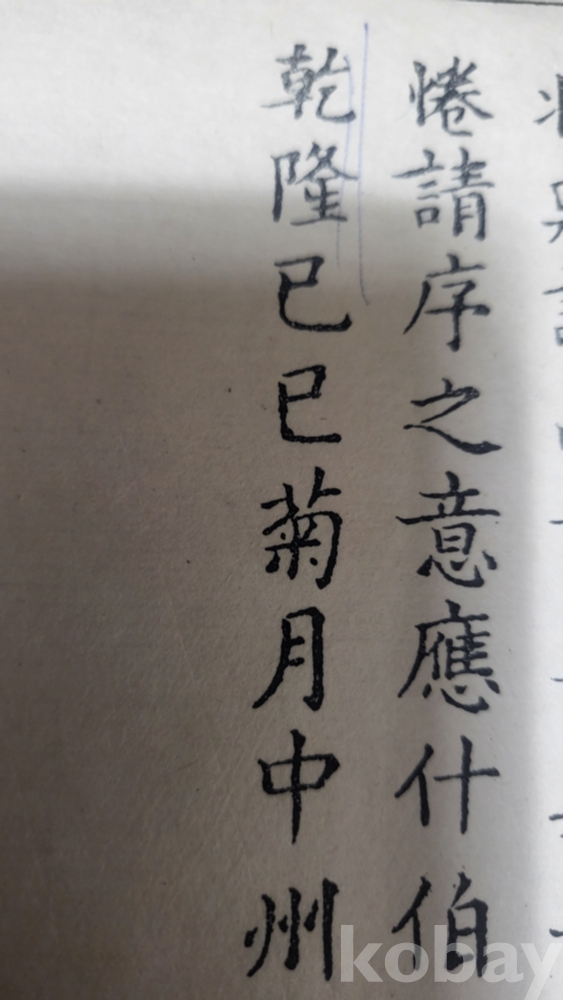 惓請序之意應什伯
乾隆己巳菊月中州
kobay